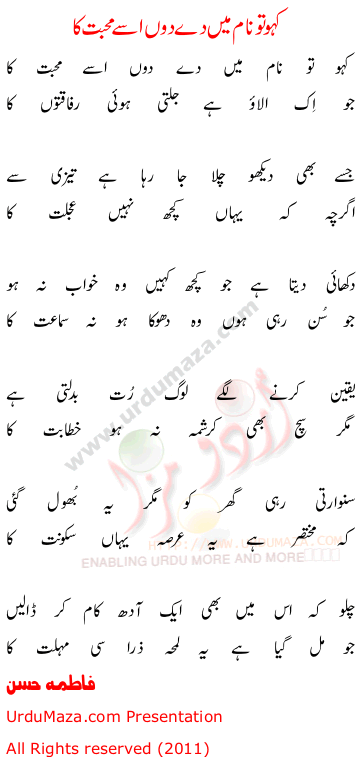 کہو تو نام میں دے دوں اسے محبت کا
کہو تو نام میں دے دوں اسے محبت کا
جو اِک الاؤ ہے جلتی ہوئی رفاقتوں کا
جسے بھی دیکھو چلا جا رہا ہے تیزی سے
اگرچہ کہ یہاں کچھ نہیں عجلت کا
دکھائی دیتا ہے جو کچھ کہیں وہ خواب نہ ہو
جو سُن رہی ہوں وہ دھوکا ہو نہ سماعت کا
یقین کرنے لگے لوگ رُت بدلتی ہے
مگر سچ بھی کرشمہ نہ ہو خطابت کا
سنوارتی رہی گھر کو مگر یہ بُھول گئی
کہ مختصر ہے یہ عرصہ یہاں سکونت کا
چلو کہ اس میں بھی ایک آدھ کام کر ڈالیں
جو مل گیا ہے یہ لمحہ ذرا سی مہلت کا
فاطمہ حسن
UrduMaza.com Presentation
All Rights reserved (2011)
www.urdumaza.com
اُردو مزا
HTTP://WWW.URDUMAZA.COM
ENABLING URDU MORE AND MORE